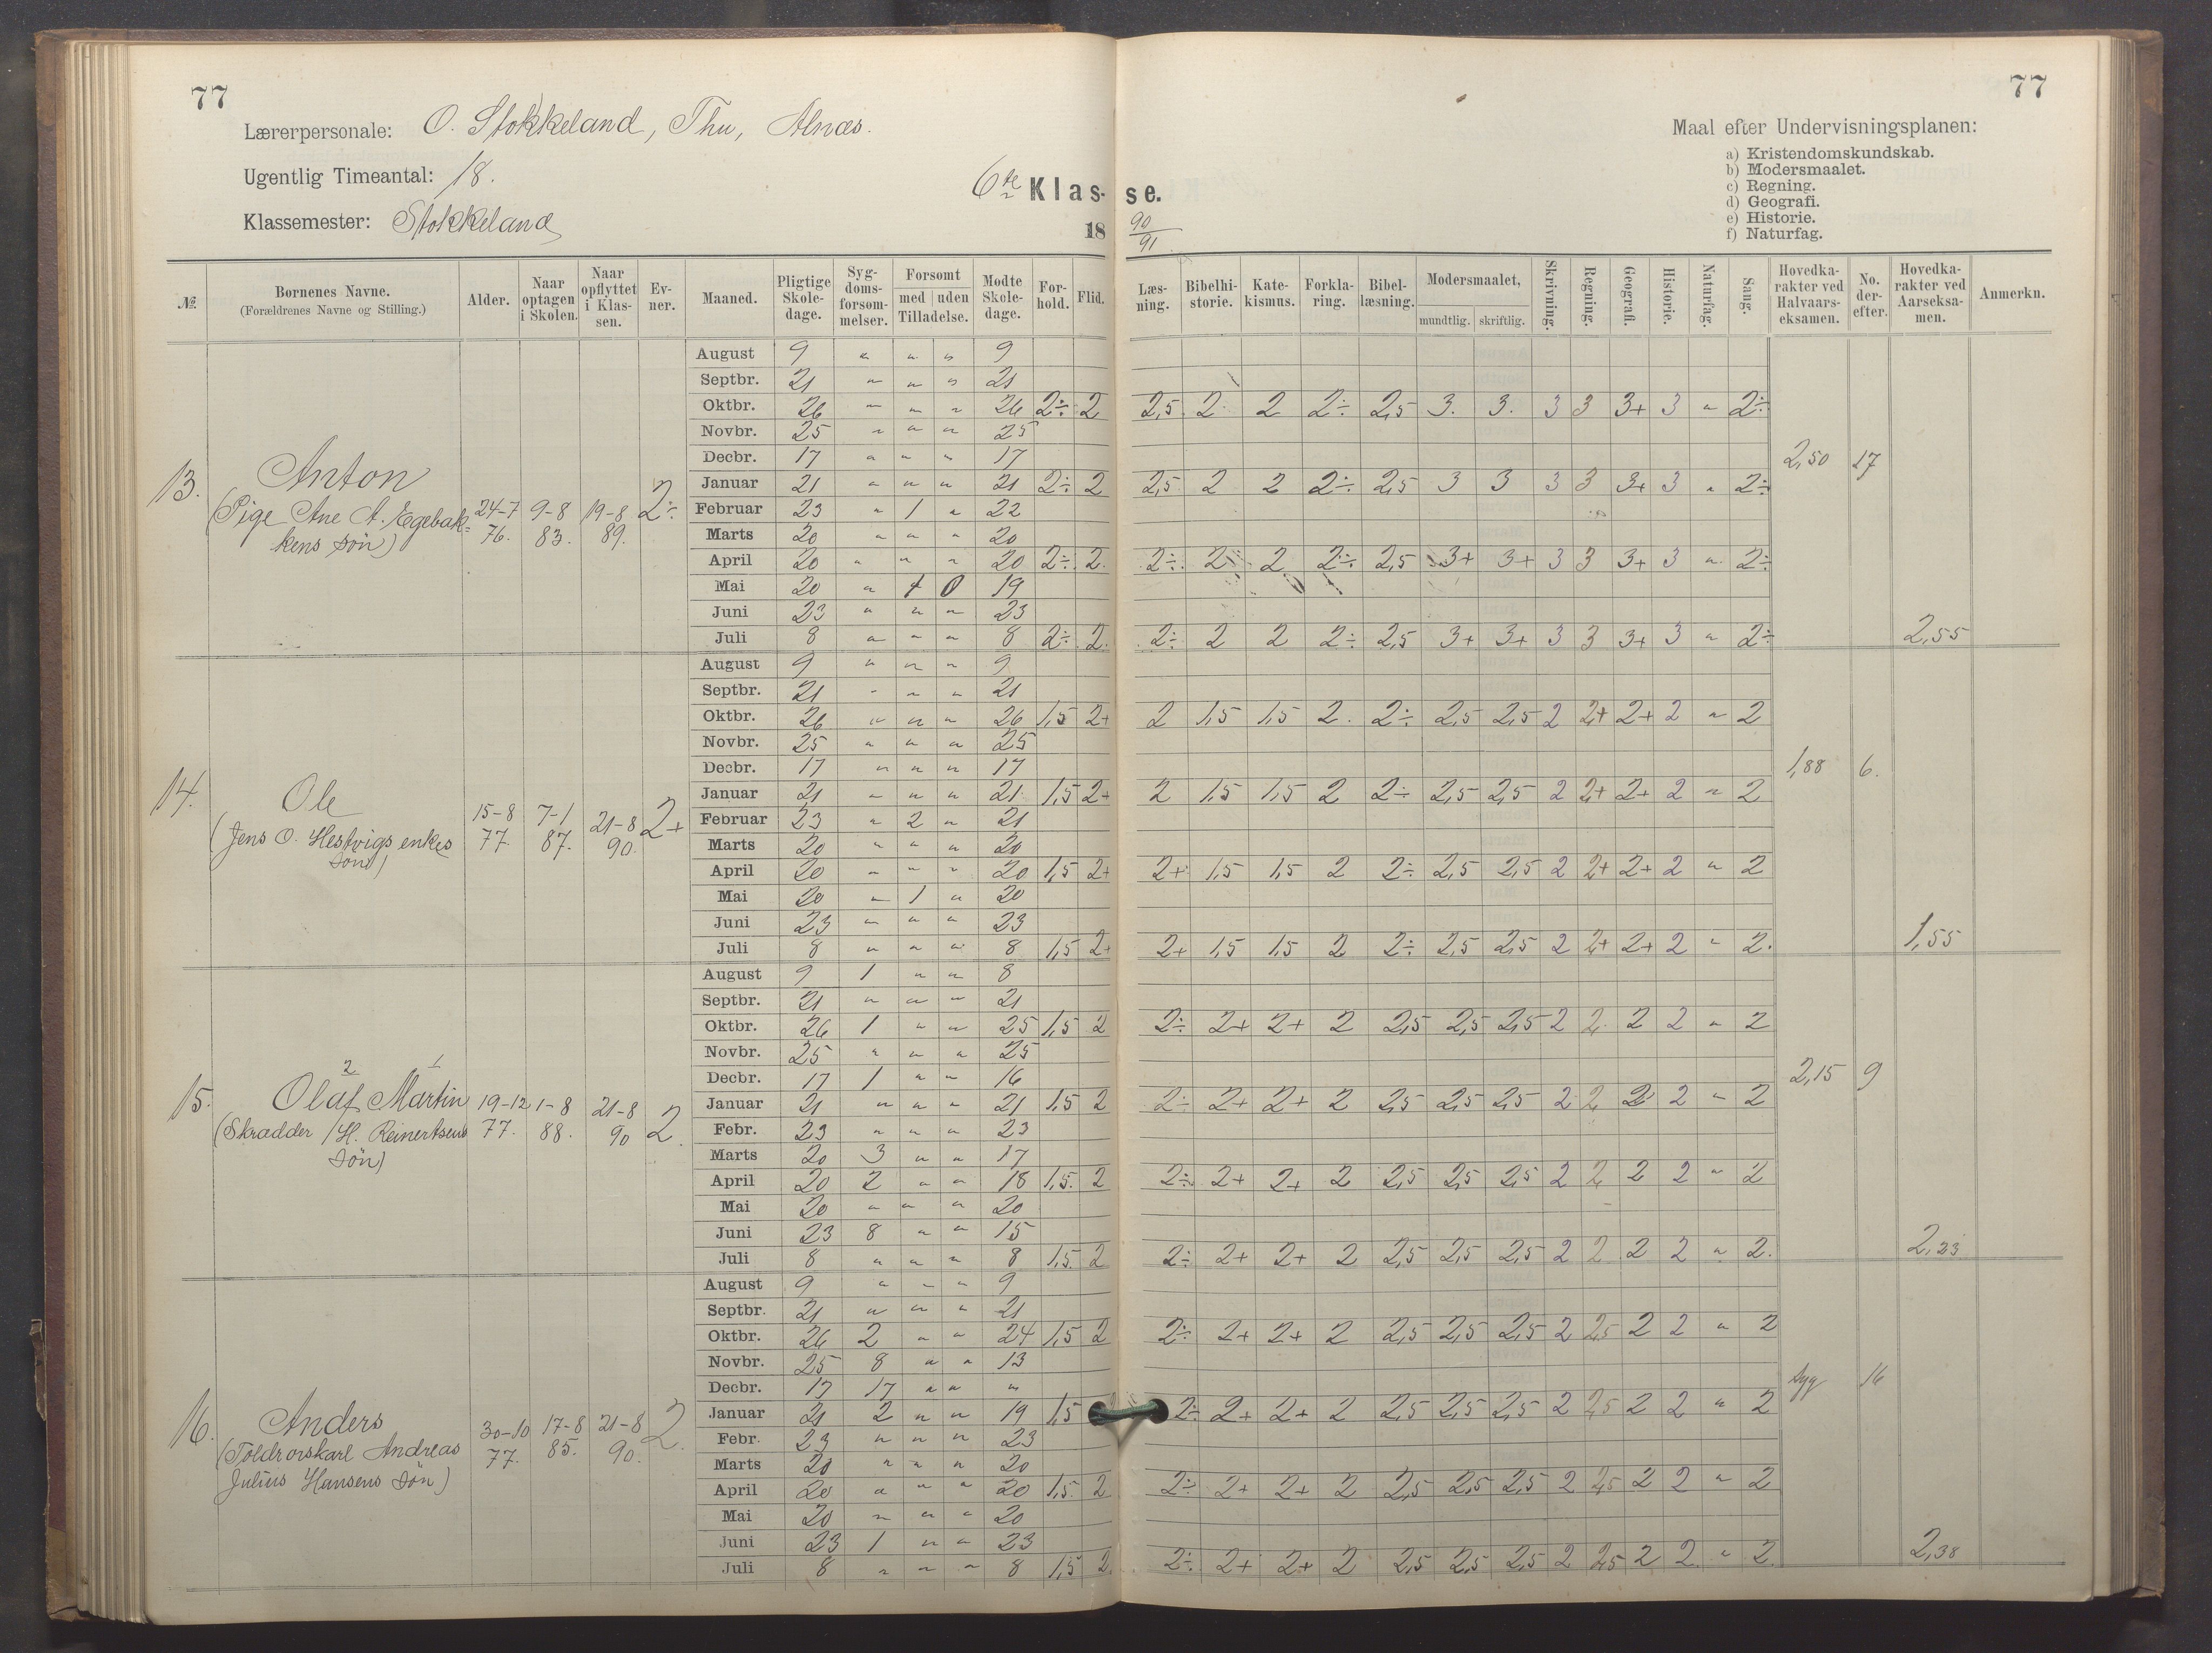 77
77
Lærerpersonale: O. Stokkeland, Thu, Alnæs.
Ugentlig Timeantal: 18.
Klassemester: Stokkeland
6te Klas- se.
18 90/91
Maal efter Undervisningsplanen:
a) Kristendomskundskab.
b) Modersmaalet.
c) Regning.
d) Geografi.
e) Historie.
f) Naturfag.
№. Børnenes Navne. (Forældrenes Navne og Stilling.) Alder. Naar optagen i Skolen. Naar opflyttet i Klassen. Evner. Maaned. Pligtige Skoledage. Sygdomsforsømmelser. Forsømt med uden Tilladelse. Mødte Skoledage. Forhold. Flid. Læsning. Bibelhistorie. Katekismus. Forklaring. Bibellæsning. Modersmaalet, mundtlig. skriftlig. Skrivning. Regning. Geografi. Historie. Naturfag. Sang. Hovedkarakter ved Halvaarseksamen. No. derefter. Hovedkarakter ved Aarseksamen. Anmerkn.
13. Anton
(Pige Ane A. Egebak-
kens søn)
24-7 76. 9-8 83. 19-8 89. 2÷
August 9 " " " 9
Septbr. 21 " " " 21
Oktbr. 26 " " " 26 2÷ 2 2,5 2 2 2÷ 2,5 3. 3. 3 3 3+ 3 " 2÷
Novbr. 25 " " " 25
Decbr. 17 " " " 17 2,50 17
Januar 21 " " " 21 2÷ 2 2,5 2 2 2÷ 2,5 3 3 3 3 3+ 3 " 2÷
Februar 23 " 1 " 22
Marts 20 " " " 20
April 20 " " " 20 2÷ 2. 2÷ 2 2 2÷ 2,5 3+ 3+ 3 3 3+ 3 " 2÷
Mai 20 " 1 0 19
Juni 23 " " " 23
Juli 8 " " " 8 2÷ 2. 2÷ 2 2 2÷ 2,5 3+ 3+ 3 3 3+ 3 " 2÷ 2,55
14. Ole
(Jens O. Hestvigs enkes
søn)
15-8 77. 7-1 87. 21-8 90. 2+
August 9 " " " 9
Septbr. 21 " " " 21
Oktbr. 26 " " " 26 1,5 2+ 2 1,5 1,5 2. 2÷ 2,5 2,5 2 2+ 2+ 2 " 2
Novbr. 25 " " " 25
Decbr. 17 " " " 17 1,88 6.
Januar 21 " " " 21 1,5 2+ 2 1,5 1,5 2 2÷ 2,5 2,5 2 2+ 2+ 2 " 2
Februar 23 " 2 " 21
Marts 20 " " " 20
April 20 " " " 20 1,5 2+ 2+ 1,5 1,5 2 2÷ 2,5 2,5 2 2+ 2+ 2 " 2
Mai 20 " 1 " 20
Juni 23 " " " 23
Juli 8 " " " 8 1,5 2+ 2+ 1,5 1,5 2 2÷ 2,5 2,5 2 2+ 2+ 2 " 2. 1,55
2 1
15. Olaf Martin
(Skrædder H. Reinertsens
søn)
19-12 77. 1-8 88. 21-8 90 2.
August 9 1 " " 8
Septbr. 21 " " " 21
Oktbr. 26 1 " " 25 1,5 2 2÷ 2+ 2+ 2 2,5 2,5 2,5 2 2 2 2 " 2
Novbr. 25 " " " 25
Decbr. 17 1 " " 16 2,15 9
Januar 21 " " " 21 1,5 2 2÷ 2+ 2+ 2 2,5 2,5 2,5 2 2 2 2 " 2
Febr. 23 " " " 23
Marts 20 3 " " 17
April 20 2 " " 18 1,5. 2 2÷ 2+ 2+ 2 2,5 2,5 2,5 2 2 2 2 " 2
Mai 20 " " " 20
Juni 23 8 " " 15
Juli 8 " " " 8 1,5. 2 2÷ 2+ 2+ 2 2,5 2,5 2,5 2 2 2 2 " 2. 2,23
16. Anders
(Toldrorskarl Andreas
Julius Hansens søn)
30-10 77. 17-8 85. 21-8 90. 2.
August 9 " " " 9
Septbr. 21 " " " 21
Oktbr. 26 2 " " 24 1,5 2 2÷ 2+ 2+ 2 2,5 2,5 2,5 2 2,5 2 2 " 2
Novbr. 25 8 " " 13
Decbr. 17 17 " " " syg 16
Januar 21 2 " " 19 1,5 2÷ 2+ 2+ 2 2,5 2,5 2,5 2 2,5 2 2 " 2
Febr. 23 " " " 23
Marts 20 " " " 20
April 20 " " " 20 1,5. 2 2÷ 2+ 2+ 2 2,5 2,5 2,5 2 2,5 2 2 " 2
Mai 20 " " " 20
Juni 23 1 " " 23
Juli 8 " " " 8 1,5 2. 2÷ 2+ 2+ 2 2,5 2,5 2,5 2 2,5 2 2 " 2. 2,38